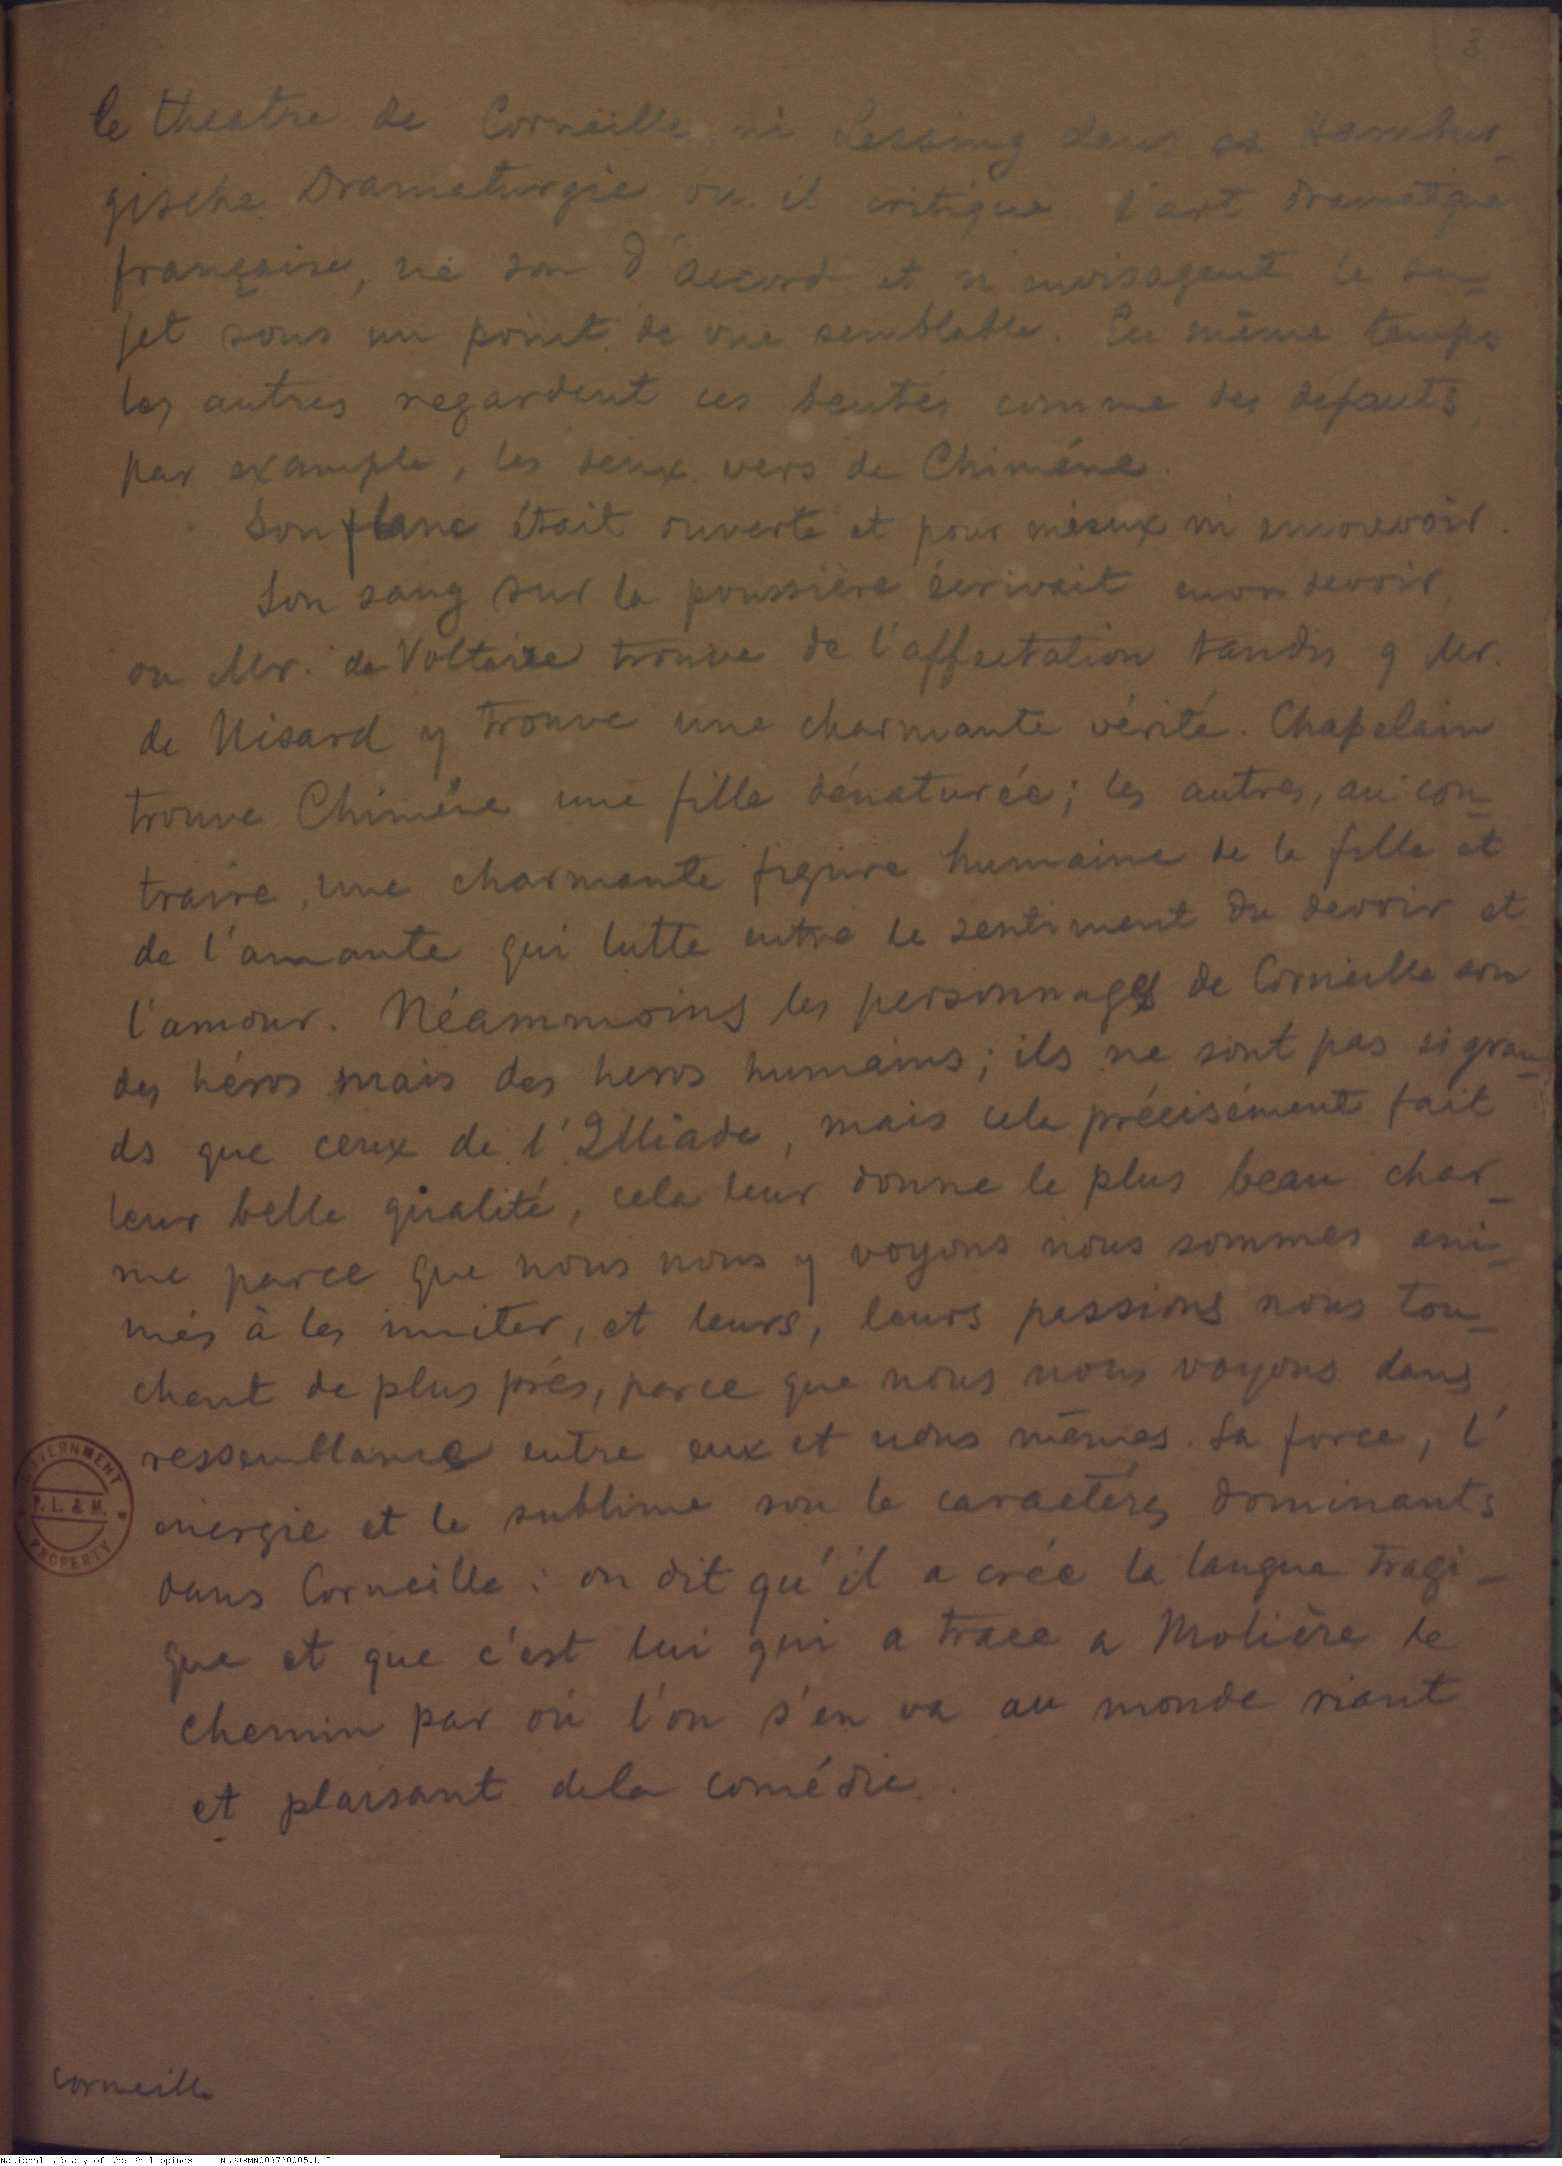 3
le theatre de Corneille ni Lessing dans sa Hambur-
gische Dramaturgie ou il critique l'art dramatique
française, ne son d'accord et n'envisagent le su-
jet sous un point de vue semblable. En même temps
les autres regardent ces beutés comme des defauts,
par example, les deux vers de Chiméne.
Son flanc était ouverte et pour mieux m'emouvoir.
Son sang sur la poussière écrivait mon devoir,
ou Mr. de Voltaire trouve de l'affectation tandis q Mr.
de Nisard y trouve une charmante vérité. Chapelain
trouve Chiméne une fille dénaturée; les autres, au con-
traire, une charmante figure humaine de la fille et
de l'amante qui lutte entre le sentiment du devoir et
l'amour. Néammoins les personnages de Corneille son
des héros mais des heros humains; ils ne sont pas si gran-
ds que ceux de l'Illiade, mais cela précisément fait
leur belle qualité, cela leur donne le plus beau char-
me parce que nous nous y voyons nous sommes ani-
més à les imiter, et leurs, leurs passions nous tou-
chent de plus prés, parce que nous nous voyons dans
ressemblance entre eux et nous mêmes. La force, l'
energie et le sublime son le caractérs dominants
dans Corneille: on dit qu'il a crée la langue tragi-
que et que c'est lui qui a trace a Molière le
chemin par où l'on s'en va au monde riant
et plaisant dela comédie.
GOVERNMENT
P. L. & M.
PROPERTY
Corneille
National Library of the Philippines